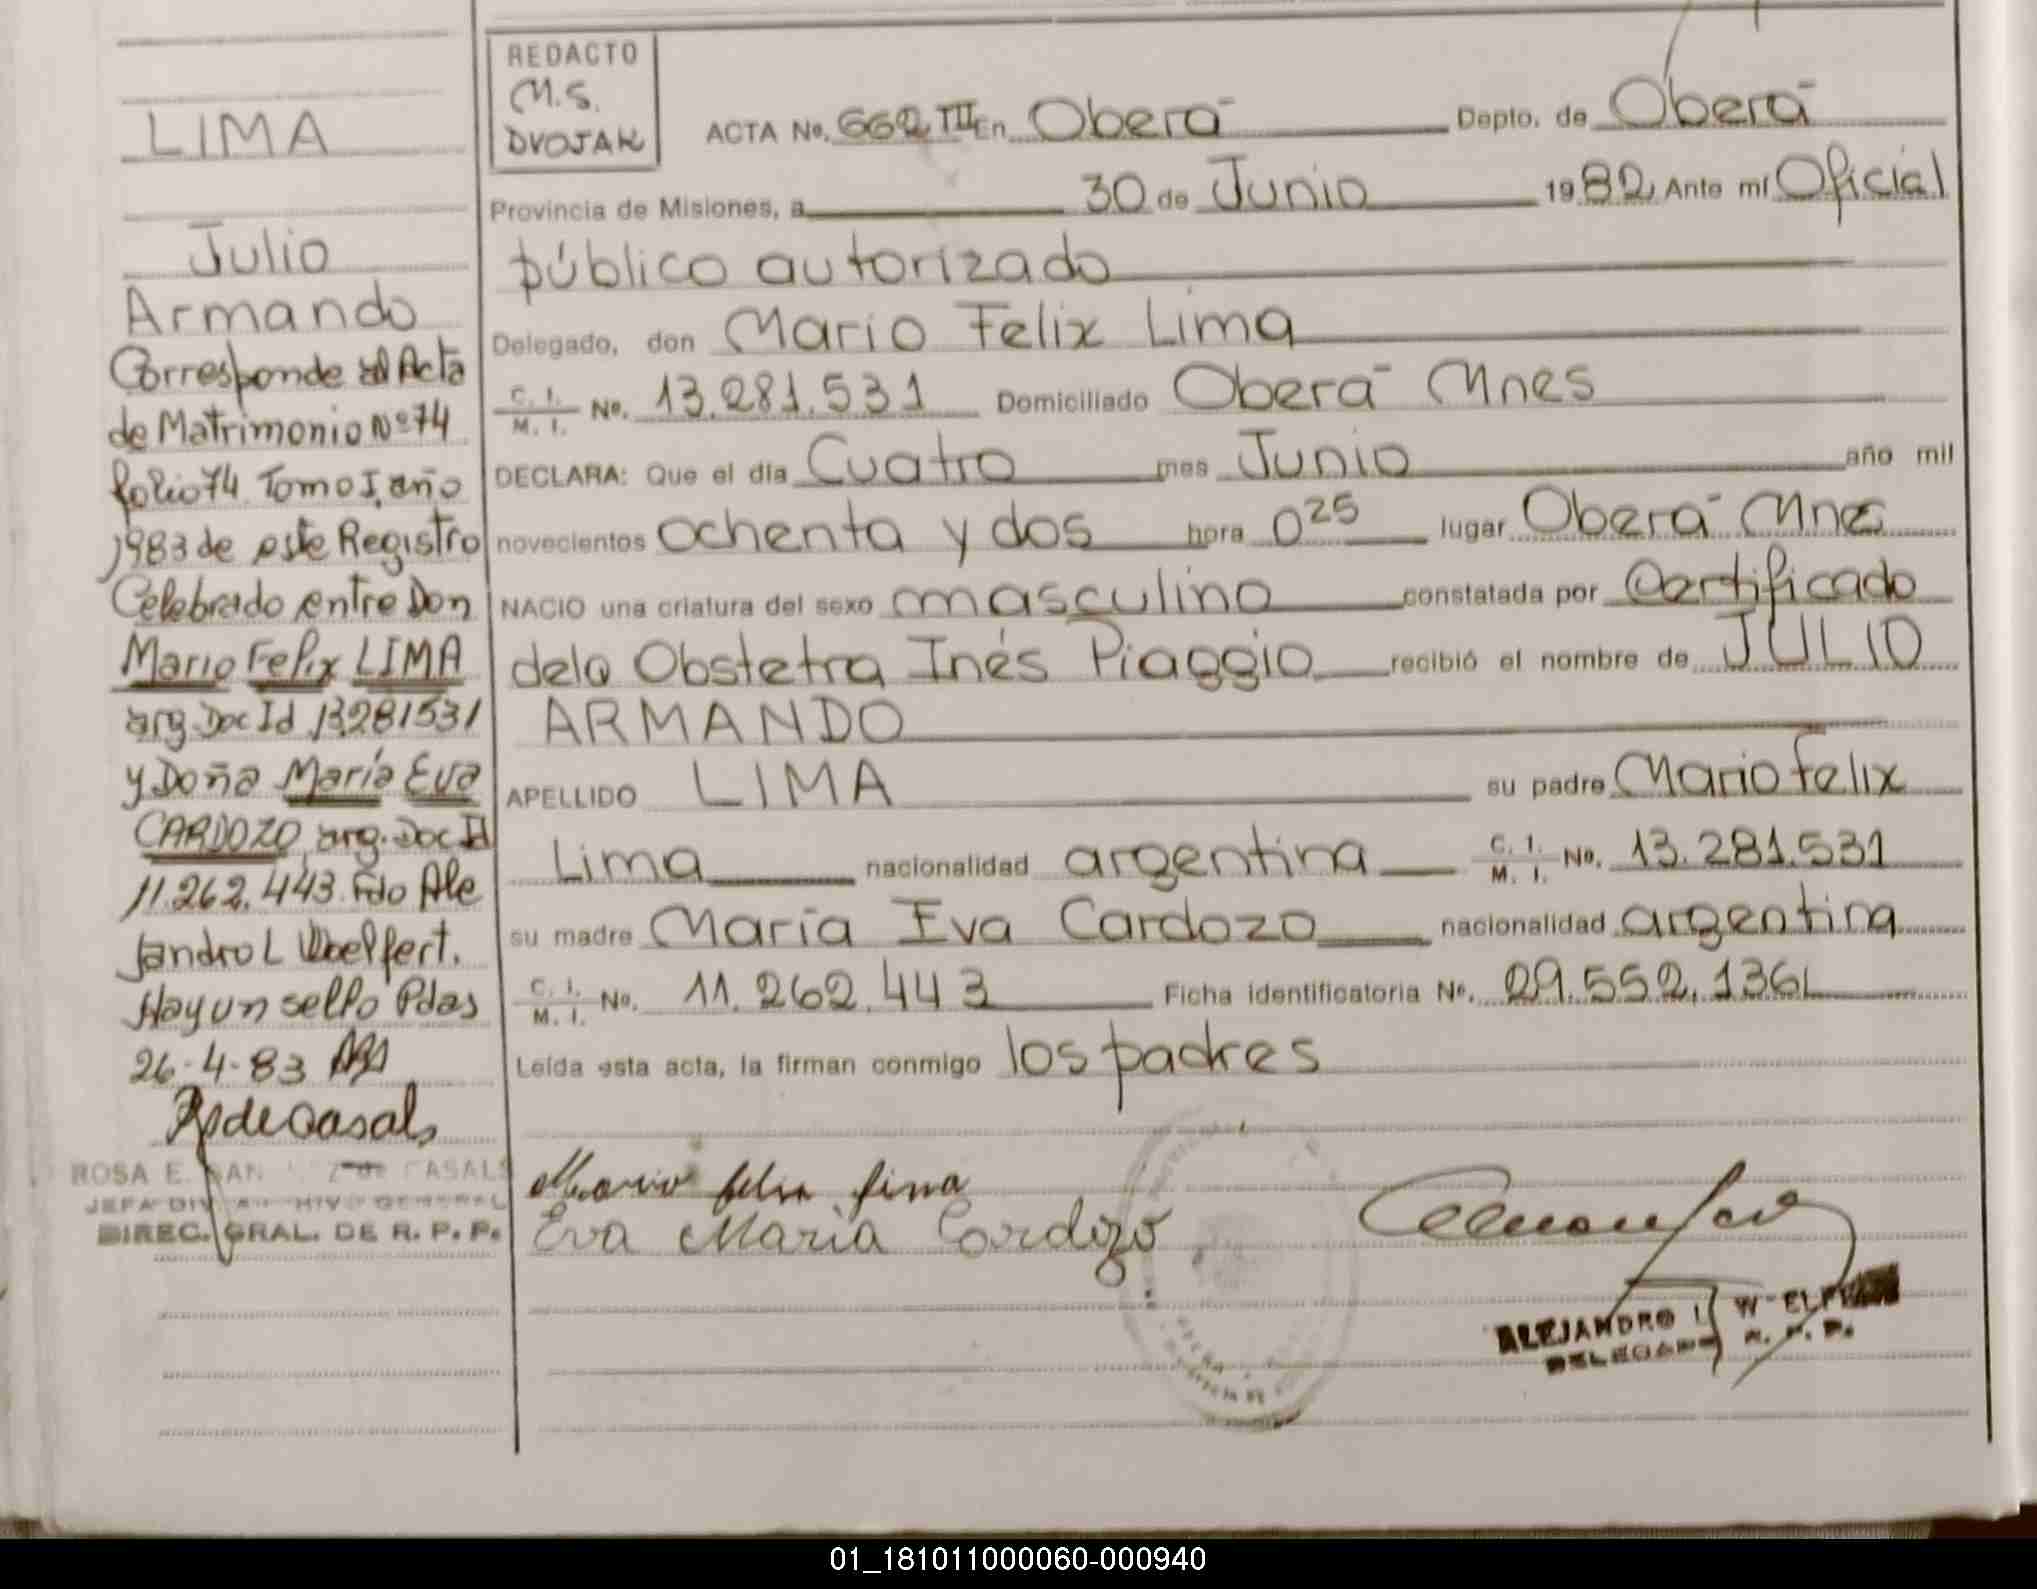 LIMA
Julio
Armando
Corresponde al Acta
de Matrimonio Nº 74
folio 74 Tomo I, año
1983 de este Registro
Celebrado entre Don
Mario Felix LIMA
arg. Doc Id 13281531
y Doña María Eva
CARDOZO, arg. Doc Id
11.262.443. Fdo Ale
jandro L Woelfert.
Hay un sello Pdas
26-4-83
R de Casals
ROSA E. CASALS
JEFA DIV. ARCHIVO GENERAL
DIREC. GRAL. DE R. P. P.
REDACTO
M.S.
DVOJAK
ACTA No. 662 TII En Oberá Depto. de Oberá
Provincia de Misiones, a 30 de Junio 1982 Ante mí Oficial
público autorizado
Delegado, don Mario Felix Lima
C. I. M. I. No. 13.281.531 Domiciliado Oberá Mnes
DECLARA: Que el día Cuatro mes Junio año mil
novecientos ochenta y dos hora 0 25 lugar Oberá Mnes
NACIO una criatura del sexo masculino constatada por Certificado
de la Obstetra Inés Piaggio recibió el nombre de JULIO
ARMANDO
APELLIDO LIMA su padre Mario Felix
Lima nacionalidad argentina C. I. M. I. No. 13.281.531
su madre María Eva Cardozo nacionalidad argentina
C. I. M. I. No. 11.262.443 Ficha identificatoria No. 29.552.136
Leída esta acta, la firman conmigo los padres
Mario felix lima
Eva María Cardozo
ALEJANDRO L. WOELFERT
DELEGADO R. P. P.
01_181011000060-000940